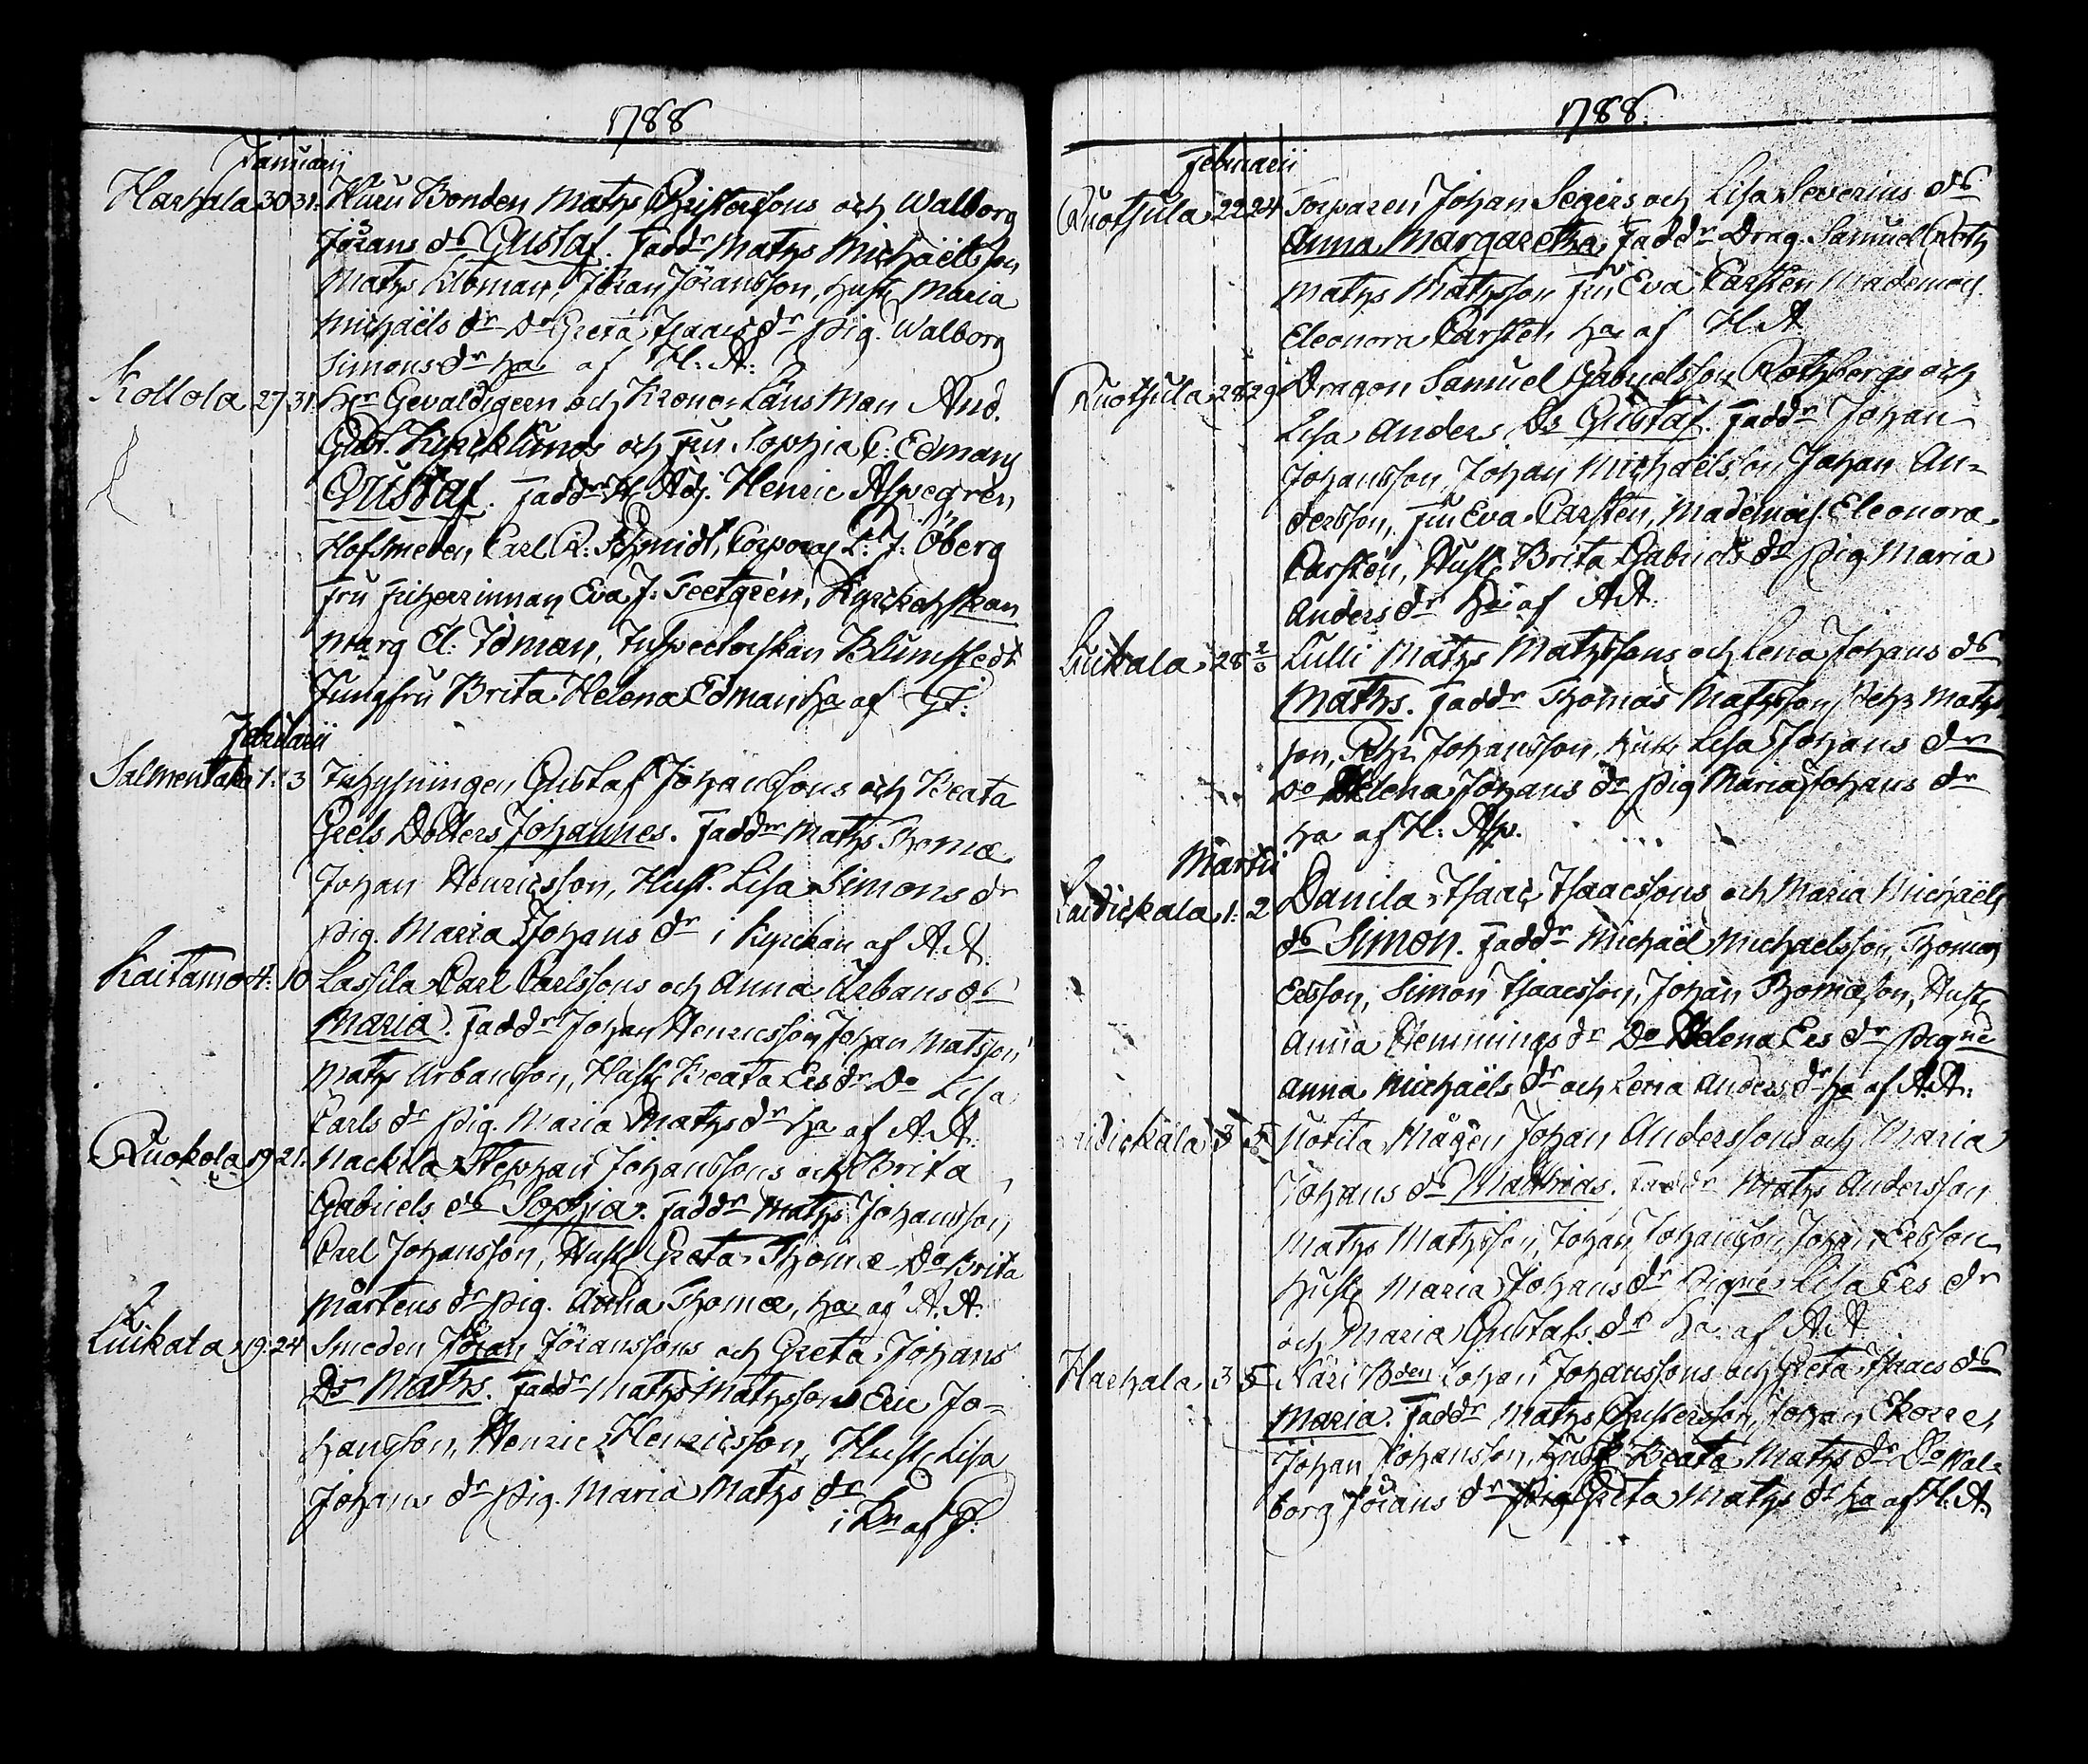 1788
Januarii
Harhala 30 31. Huru Bonden Maths Christersons och Walborg
Jörans ds Gustaf. Faddr Maths Michaëlsson
Maths Kloman, Jöran Jöransson, hust. Maria
Michaëls dr Do Greta Isaacs dr pig. Walborg
Simons dr ha af H: A:
Kollola 27 31. Hr Gevaldigern och Krono Läns Man And.
Gust. Kyrcklunds och Fru Sophia C: Edmans
Gustaf. Faddr H. Adj. Henric Aspegren,
Hofsmeden, Carl R: Schmidt, Corporal L: J: Öberg
Fru Friherrinnan Eva J: Feetgren,
Marg El: Idman, Inspectorskan Blumstedt
Jungfru Brita Helena Edman ha af
Februarii
Salmentaka 1. 3 Inhysningen Gustaf Johanssons och Beata
Grels Dotters Johannes. Faddr Maths Thomæ
Johan Henricsson, Hust. Lisa Simons dr
pig. Maria Johans dr i Kyrckan af A. A.
Kaitamo 4. 10 Lassila Carl Carlssons och Anna Urbans ds
Maria. Faddr Johan Henricsson Johan Matsson
Maths Urbansson, Hust. Beata Ers dr Do Lisa
Carls dr pig. Maria Maths dr ha af A. A.
Ruokola 19 21. Nackila Stephan Johanssons och Brita
Gabriels ds Sophia. Faddr Maths Johansson,
Carl Johansson, Hust. Greta Thomæ Do Brita
Mårtens dr pig. Anna Thomæ, ha af A. A.
Luikala 19. 24 Smeden Jöran Jöranssons och Greta Johans
Ds Maths. Faddr Maths Mathsson Eric Jo=
hansson, Henric Henricsson, Hust. Lisa
Johans dr pig. Maria Maths dr
i Kn af
1788.
Februarii
Ruotsula 22 24 Torparen Johan Segers och Lisa Severius ds
Anna Margaretha Faddr Drag. Samuel Roth
Maths Mathsson Fru Eva Carsten Mademois.
Eleonora Carsten ha af H. A
Ruotsula 28 29 Dragon Samuel Gabrielsson Rothbergs och
Lisa Anders Ds Gustaf. Faddr Johan
Johansson, Johan Michaëlsson, Johan An=
dersson, Fru Eva Carsten, Mademois. Eleonora
Carsten, Hust. Brita Gabriels dr pig Maria
Anders dr ha af A A.
Luikala 28 2/3 Lulli Maths Mathssons och Lena Johans ds
Maths. Faddr Thomas Mathsson, Pehr Maths
son, Pehr Johansson, hust. Lisa Johans dr
Do Helena Johans dr pig Maria Johans dr
ha af H: Asp.
Martii
Laidickala 1. 2 Danila Isaac Isaacssons och Maria Michaëls
ds Simon. Faddr Michaël Michaelsson, Thomas
Ersson, Simon Isaacsson, Johan Thomæson, Hust.
Anna Clemmings dr Do Helena Ers dr pigne
Anna Michaëls dr och Lena Anders dr ha af A. A.
aidickala 3 5 Notila Mågen Johan Anderssons och Maria
Johans ds Matthias. Faddr Maths Andersson
Maths Mathsson, Johan Johansson, Johan Ersson
hust. Maria Johans dr pigne Lisa Ers dr
och Maria Gustafs dr ha af A A
Harhala 3 5 Näri Bden Johan Johanssons och Greta Isaacs ds
Maria. Faddr Maths Christersson, Johan Ekorre,
Johan Johansson, Hust Beata Maths dr Do Wal=
borg Jörans dr Pig Greta Maths dr ha af H. A.